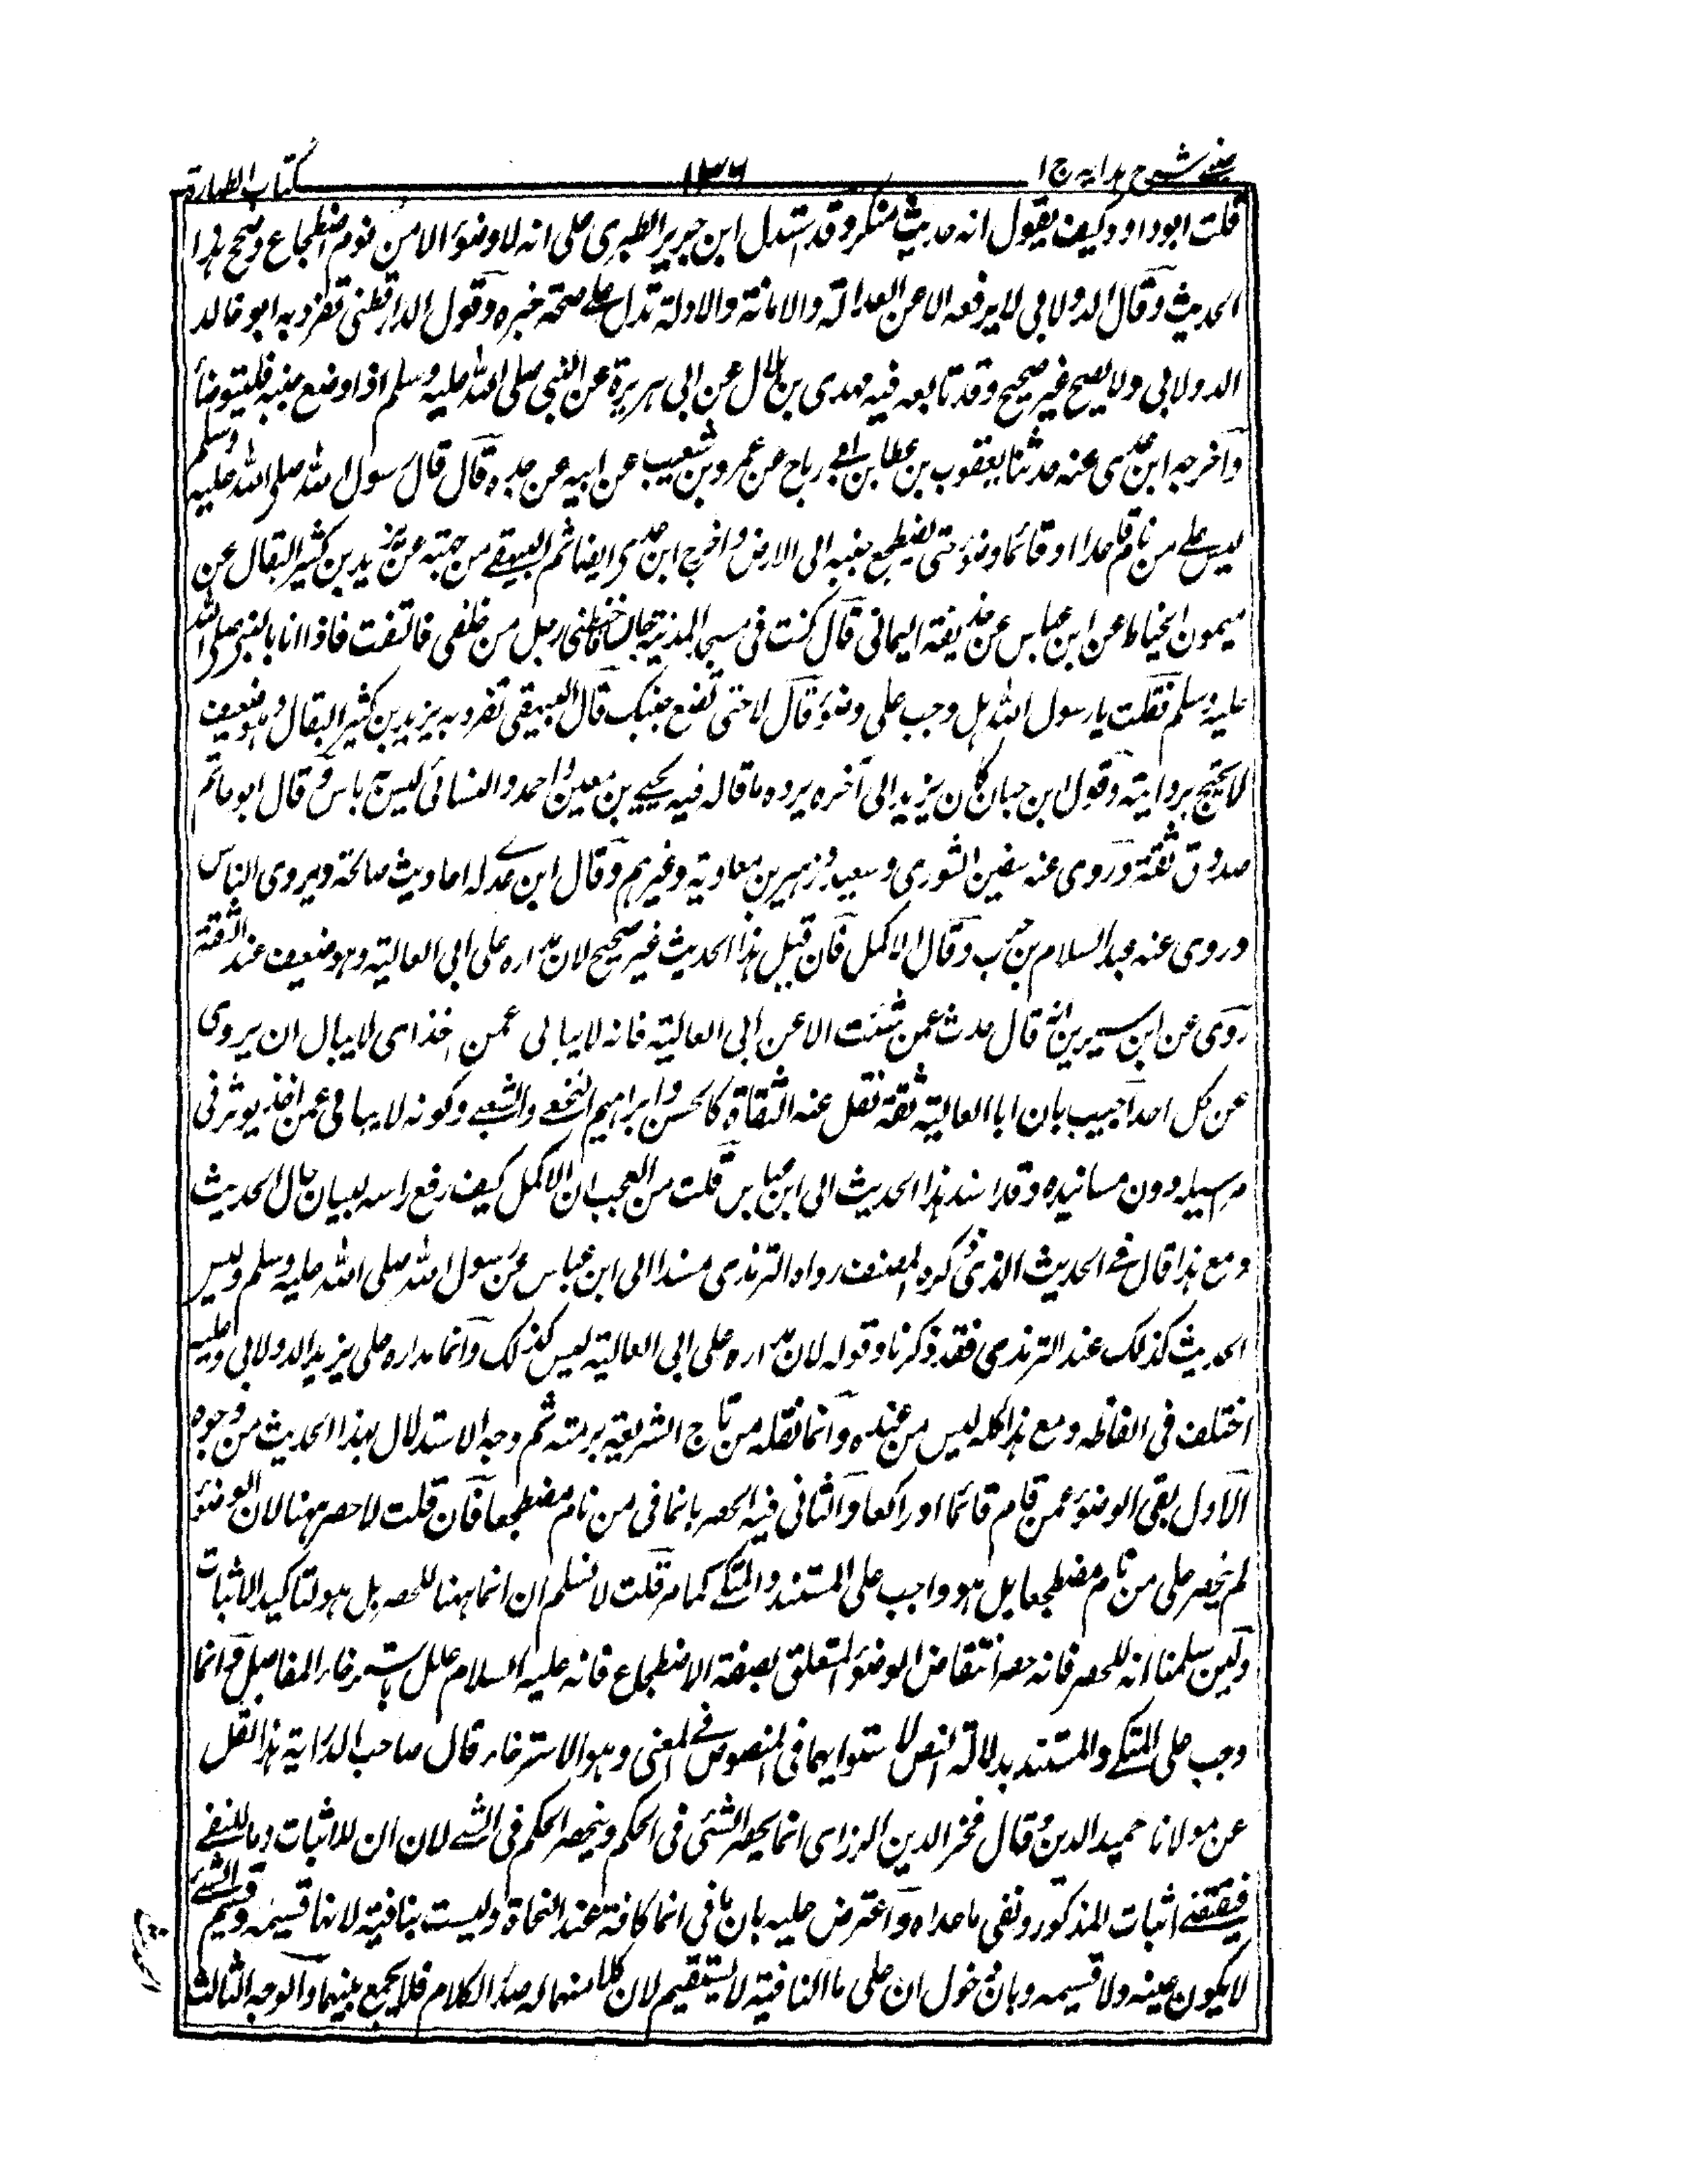 عینی شرح ہدایہ ج ١ ١٣٦ کتاب الطہارۃ
قلت ابو داود کیف یقول انہ حدیث منکر وقد استدل ابن جریر الطبری علی انہ لا وضوء الا من نوم اضطجاع وصحح ہذا
الحدیث وقال الدولابی لا یرفعہ الا عن العدالۃ والامانۃ والادلۃ تدل علی صحۃ خبرہ وقول الدارقطنی تفرد بہ ابو خالد
الدولابی ولا یصح غیر صحیح وقد تابعہ فیہ مہدی بن ہلال عن ابی ہریرۃ عن النبی صلی اللہ علیہ وسلم اذا وضع جنبہ فلیتوضأ
واخرجہ ابن عدی عنہ حدثنا یعقوب بن عطا بن ابی رباح عن عمرو بن شعیب عن ابیہ عن جدہ قال قال رسول اللہ صلی اللہ علیہ وسلم
لیس علی من نام قاعدا او قائما وضوء حتی یضطجع جنبہ الی الارض واخرج ابن عدی ایضا ثم البیہقی من جہتہ عن یزید بن کثیر البقال عن
میمون الخیاط عن ابن عباس عن حذیفۃ الیمانی قال کنت فی مسجد المدینۃ جالسا رجل من خلفی فالتفت فاذا انا بالنبی صلی اللہ
علیہ وسلم فقلت یا رسول اللہ ہل وجب علی وضوء قال لا حتی تضع جنبک قال البیہقی تفرد بہ یزید بن کثیر البقال وہو ضعیف
لا یحتج بروایتہ وقول ابن حبان کان یزید الی آخرہ یردہ ما قالہ فیہ یحیی بن معین واحمد والنسائی لیس بہ باس وقال ابو حاتم
صدوق ثقۃ وروی عنہ سفین الثوری وسعید وزہیر بن معاویۃ وغیرہم وقال ابن عدی لہ احادیث صالحۃ ویروی الناس
وروی عنہ عبد السلام بن حرب وقال الاکمل فان قیل ہذا الحدیث غیر صحیح لان مدارہ علی ابی العالیۃ وہو ضعیف عند الثقۃ
روی عن ابن سیرین انہ قال حدث عمن شئت الا عن ابی العالیۃ فانہ لا یبالی عمن اخذ ای لا یبال ان یروی
عن کل احد اجیب بان ابا العالیۃ ثقۃ نقل عنہ الثقاۃ کالحسن وابراہیم النخعی والشعبی وکونہ لا یبالی عمن اخذ یوثر فی
مراسیلہ دون مسانیدہ وقد اسند ہذا الحدیث الی ابن عباس قلت من العجب ان الاکمل کیف رفع راسہ لبیان حال الحدیث
ومع ہذا قال فی الحدیث الذی ذکرہ المصنف رواہ الترمذی مسندا الی ابن عباس عن رسول اللہ صلی اللہ علیہ وسلم ولیس
الحدیث کذلک عند الترمذی فقد ذکرنا وقولہ لان مدارہ علی ابی العالیۃ لیس کذلک وانما مدارہ علی یزید الدولابی وعلیہ
اختلف فی الفاظہ ومع ہذا کلہ لیس من عندہ وانما نقلہ من تاج الشریعۃ برمتہ ثم وجہ الاستدلال بہذا الحدیث من وجوہ
الاول بقی الوضوء عمن قام قائما او راکعا والثانی فیہ الحصر بانما فی من نام مضطجعا فان قلت لا حصر ہہنا لان الوضوء
لم ینحصر علی من نام مضطجعا بل ہو واجب علی المستند والمتکی کما مر قلت لا نسلم ان انما ہہنا للحصر بل ہو لتاکید الاثبات
ولین سلمنا انہ للحصر فانہ حصر انتقاض الوضوء المتعلق بصفۃ الاضطجاع فانہ علیہ السلام علل باسترخاء المفاصل وانما
وجب علی المتکی والمستند بدلالۃ النص لاستوایہما فی المنصوص فی المعنی وہو الاسترخاء قال صاحب الدرایۃ ہذا نقل
عن مولانا حمید الدین وقال فخر الدین الرازی انما یحصر الشئی فی الحکم وینحصر الحکم فی الشئی لان ان للاثبات وما للنفی
فیقتضی اثبات المذکور ونفی ما عداہ واعترض علیہ بان ما فی انما کافۃ عند النحاۃ ولیست بنافیۃ لانہا قسیمہ وقسیم الشئی
لا یکون عینہ ولا قسیمہ وبان دخول ان علی ما النافیۃ لا یستقیم لان کلا منہما لہ صدر الکلام فلا یجمع بینہما والوجہ الثالث